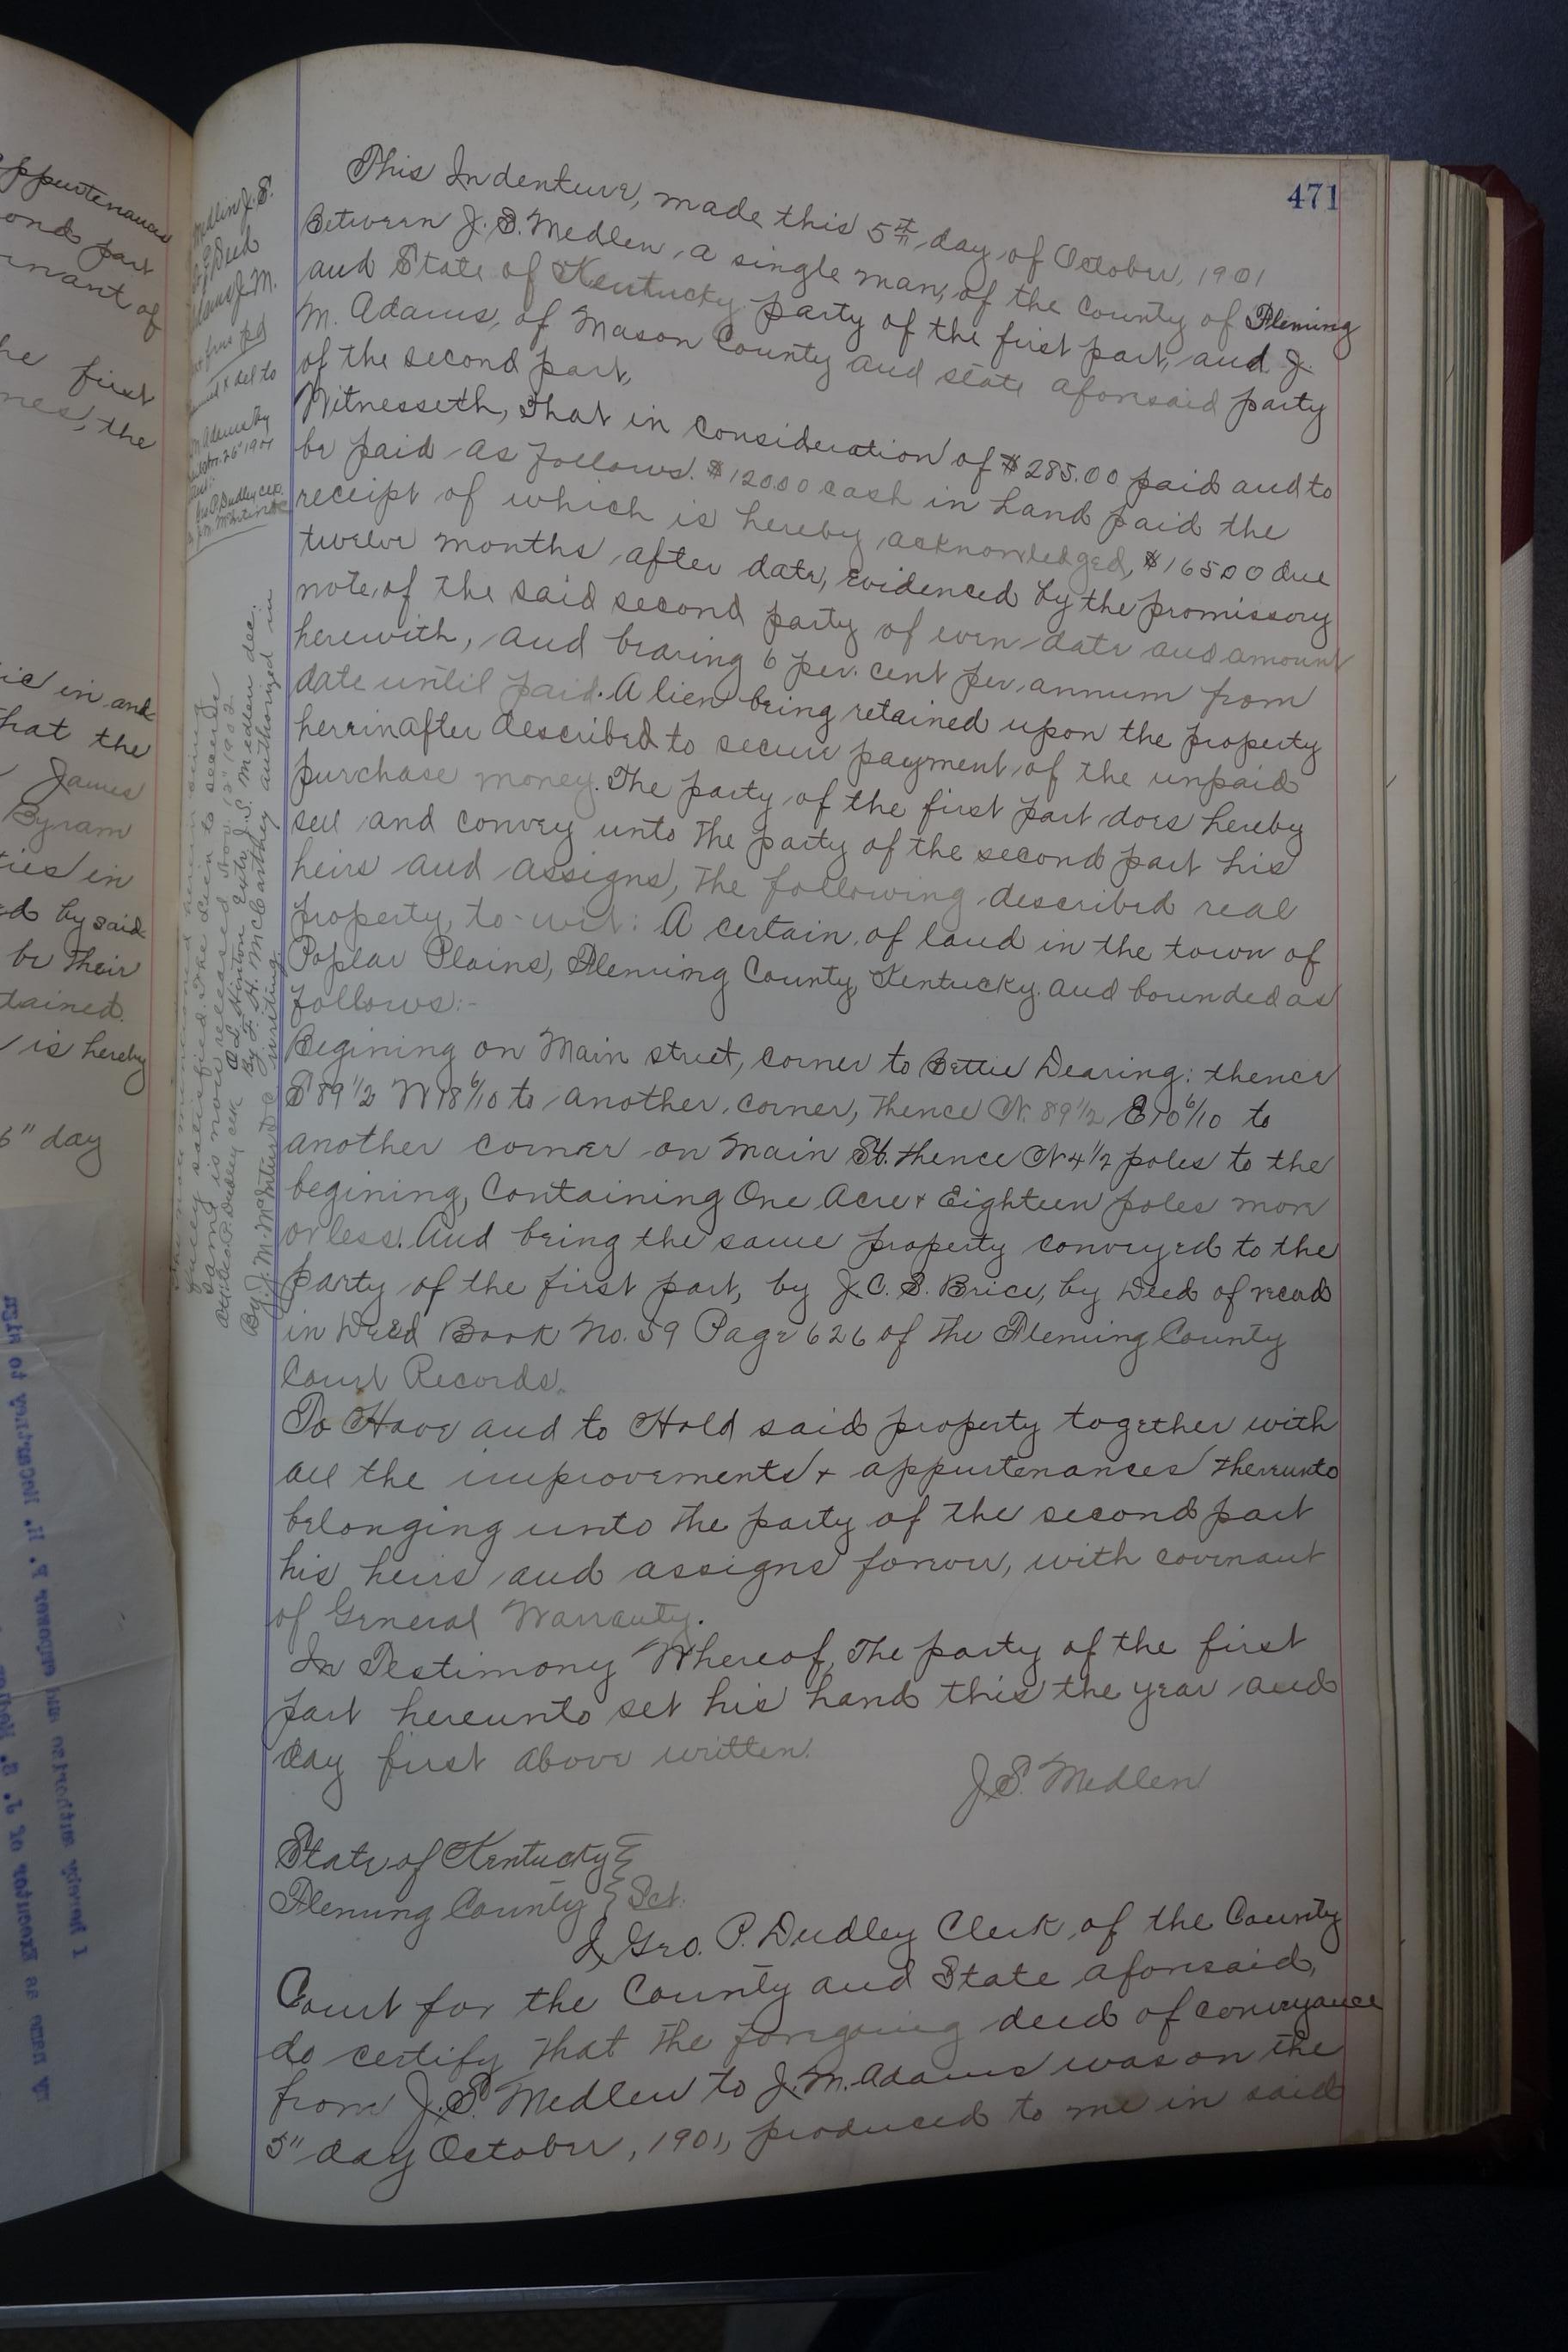 471
This Indenture, made this 5th day of October, 1901
Between J. S. Medlen, a single man, of the County of Fleming
and State of Kentucky party of the first part, and J.
M. Adams, of Mason County and state aforesaid party
of the second part,
Witnesseth, That in consideration of $285.00 paid and to
be paid as follows. $120.00 cash in hand paid the
receipt of which is hereby acknowledged, $165.00 due
twelve months after date, evidenced by the promissory
note of the said second party of even date and amount
herewith, and bearing 6 per. cent per annum from
date until paid. A lien being retained upon the property
hereinafter described to secure payment of the unpaid
purchase money. The party of the first part does hereby
sell and convey unto the party of the second part his
heirs and assigns, the following described real
property, to-wit: A certain of land in the town of
Poplar Plains, Fleming County, Kentucky. and bounded as
follows:-
Begining on Main street, corner to Bettie Dearing: thence
S 89 1/2 W 18 6/10 to another corner, thence N. 89 1/2 E 10 6/10 to
another corner on Main St. thence N 4 1/2 poles to the
begining, Containing One Acre + Eighteen poles more
or less. And being the same property conveyed to the
party of the first part, by J. C. S. Brice, by Deed of record
in Deed Book No. 59 Page 626 of the Fleming County
Court Records.
To Have and to Hold said property together with
all the improvements + appurtenances thereunto
belonging unto the party of the second part
his heirs and assigns forever, with covenant
of General Warranty.
In Testimony Whereof, The party of the first
part hereunto set his hand this the year and
day first above written.
J. S. Medlen
State of Kentucky }
Fleming County } Sct.
I, Geo. P. Dudley Clerk of the County
Court for the County and State aforesaid,
do certify that the foregoing deed of conveyance
from J. S. Medlen to J. M. Adams was on the
5" day October, 1901, produced to me in said
Medlin J. S.
Deed
Adams J. M.
del to
Adams
26" 1901
Geo P. Dudley Clk.
fully satisfied. The lien to secure
same is now released Nov. 12" 1902.
O. S. Hinton Extr J. S. Medlen dec.
By F. H. McCarthey authorized in
writing.
Attest P. Dudley Clk
By J. M. McIntire D C
appurtenances
ond part
enant of
he first
the
in and
that the
James
Byram
ties in
ed by said
be their
tained.
is hereby
6" day